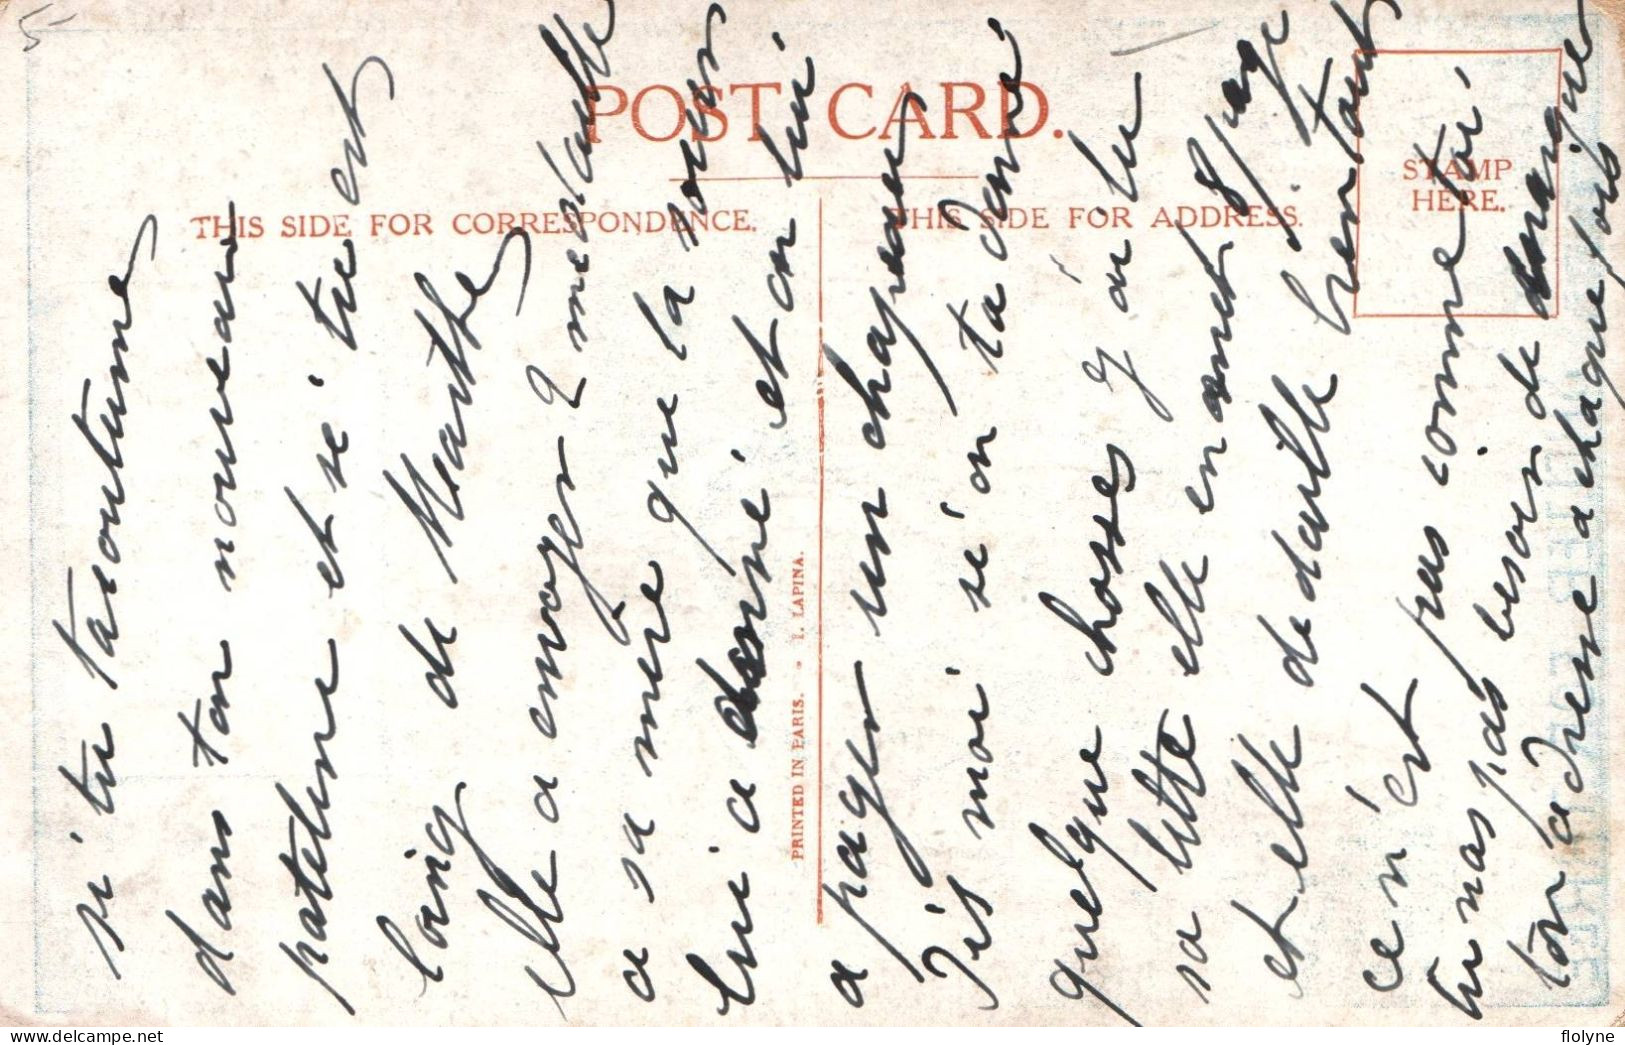 5-
POST CARD.
THIS SIDE FOR CORRESPONDENCE.
THIS SIDE FOR ADDRESS.
STAMP
HERE.
PRINTED IN PARIS. - I. LAPINA.
si tu tacoutume
dans ton nouveau
patelme et sé' tu est
loing de Marthe
elle a envoyer 2 medaille
a sa mère que la sœur
lui a donné et on lui
a payer un chapeau
Dis moi sé'on ta donné
quelque chosses j'ai lu
sa lettre elle en avait 8 page
et elle de daille bientaut
ce n'ét pas comme toi.
tu mas pas besoin de marque
ton adresse a chaque fois
flolyne